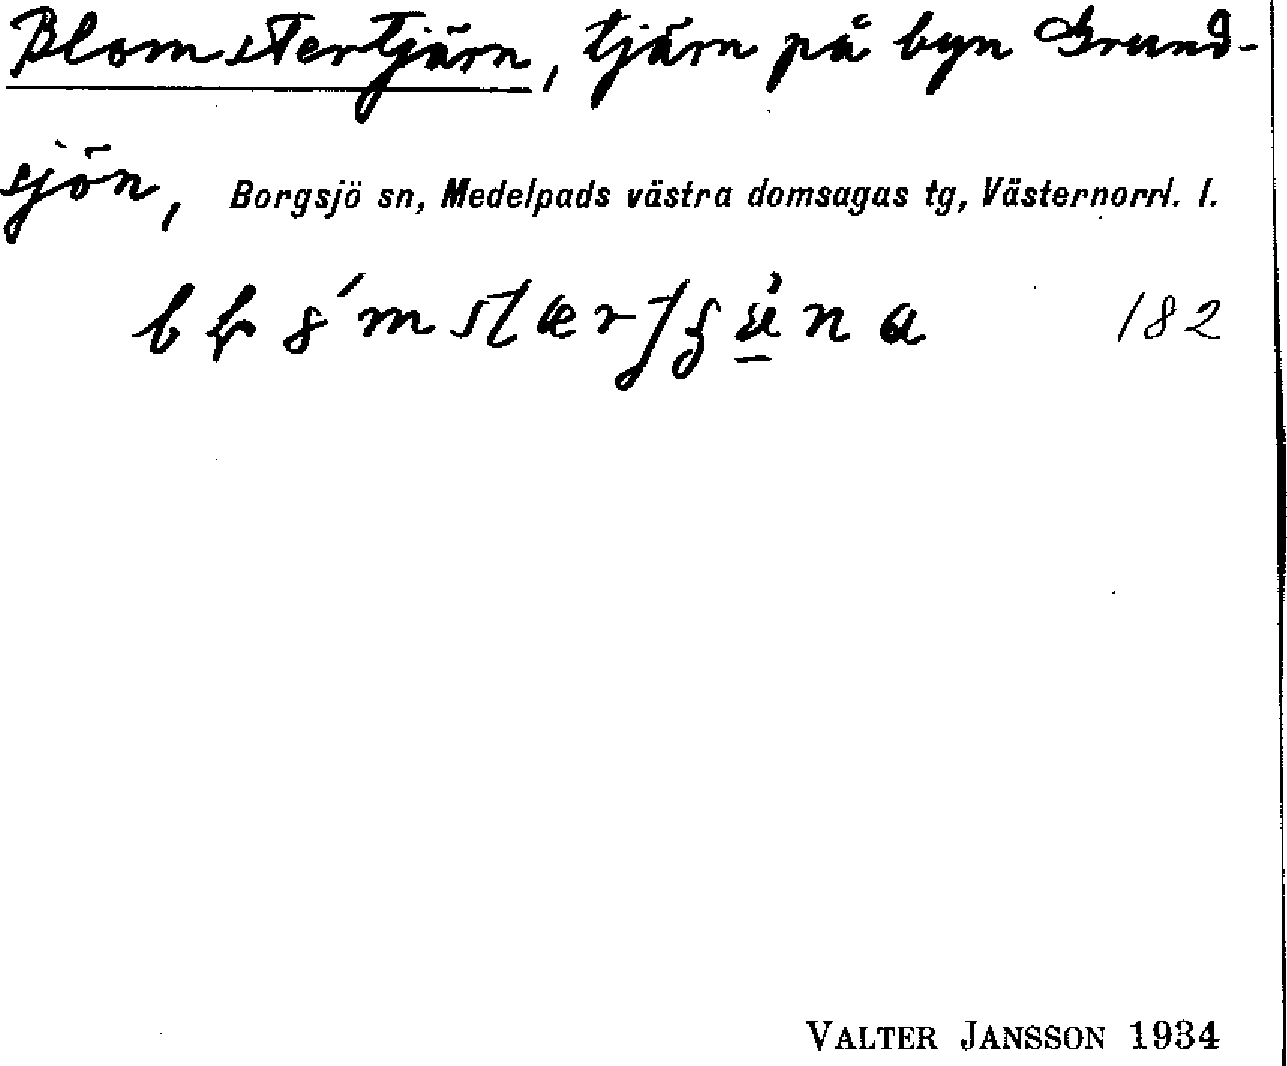 Blomstertjärn, tjärn på byn Grund-
sjön, Borgsjö sn, Medelpads västra domsagas tg, Västernorrl. l.
182
VALTER JANSSON 1934